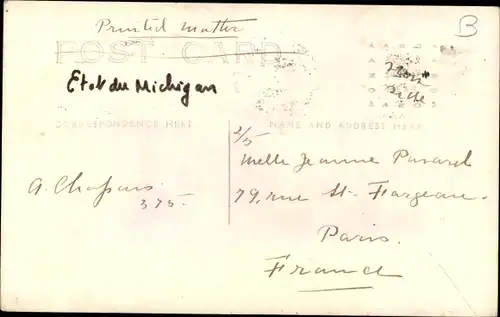 Printed matter
B
POST CARD
Etat du Michigan
CORRESPONDENCE HERE
NAME AND ADDRESS HERE
2/5
Melle Jeanne Pavard
A. Chapuis
79, rue St-Fargeau
375-
Paris.
France